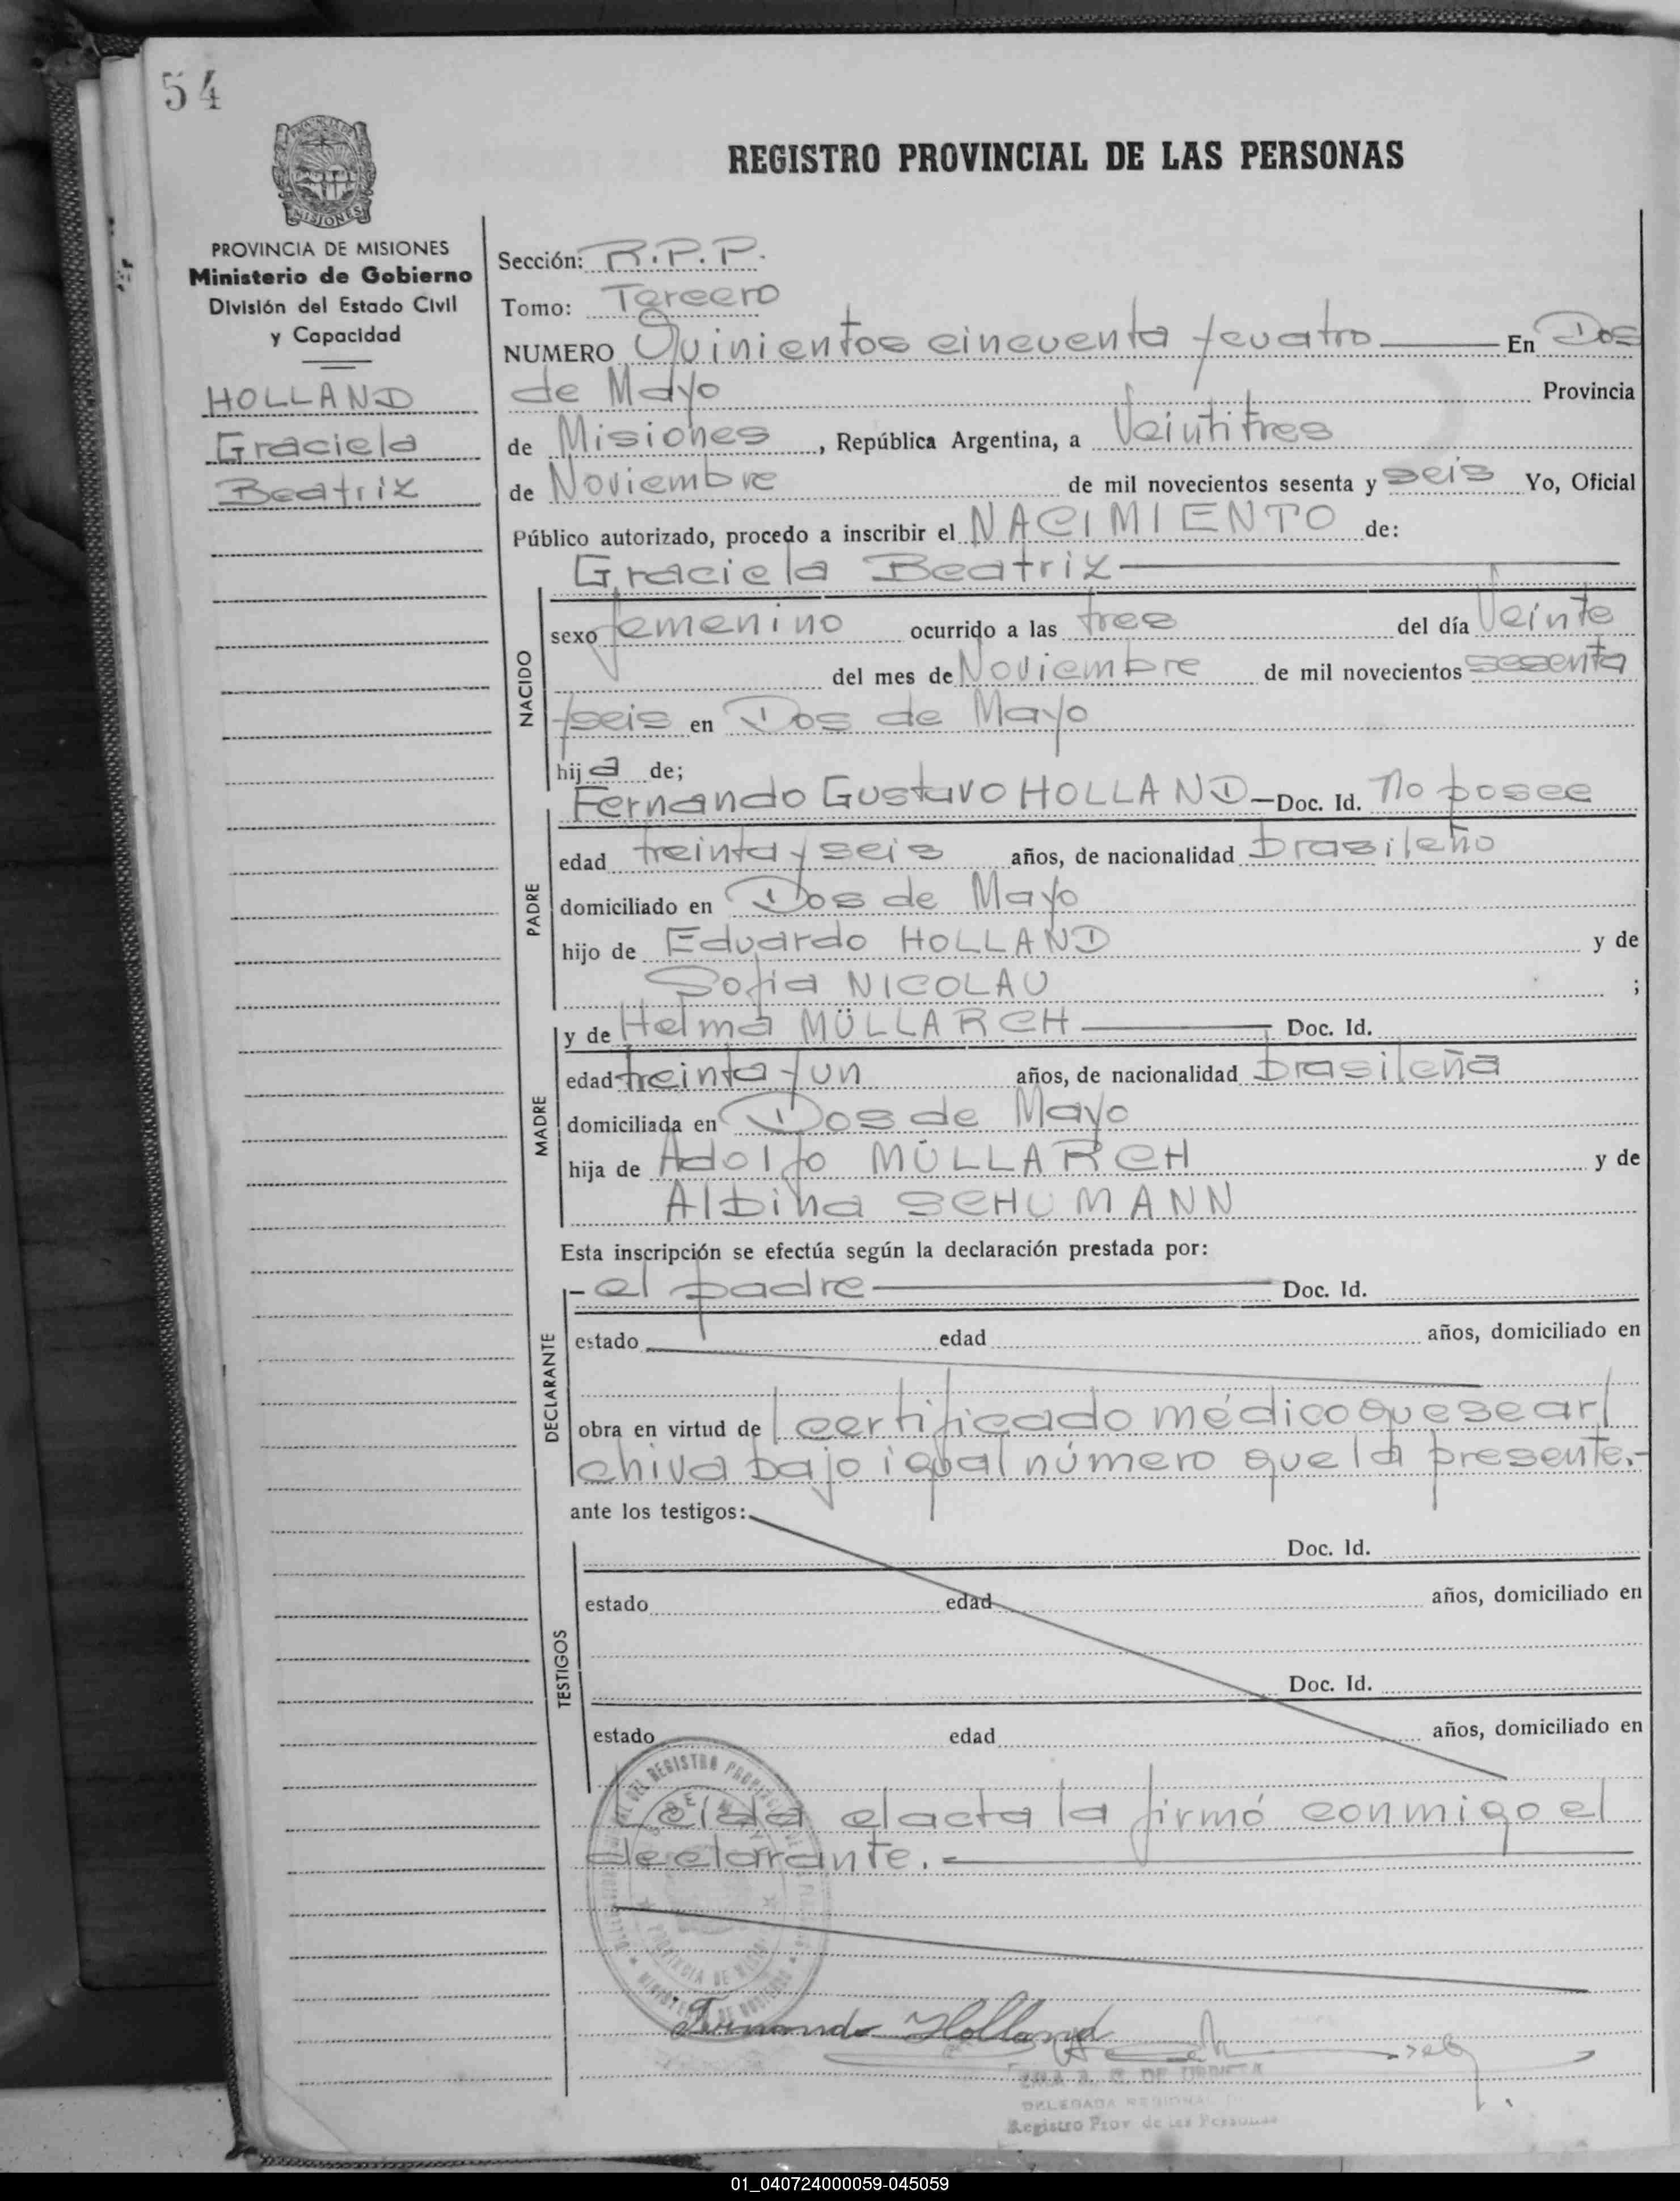 54
MISIONES
REGISTRO PROVINCIAL DE LAS PERSONAS
PROVINCIA DE MISIONES
Ministerio de Gobierno
División del Estado Civil
y Capacidad
HOLLAND
Graciela
Beatriz
Sección: R.P.P.
Tomo: Tercero
NUMERO Quinientos cincuenta y cuatro En Dos
de Mayo Provincia
de Misiones, República Argentina, a Veintitres
de Noviembre de mil novecientos sesenta y seis Yo, Oficial
Público autorizado, procedo a inscribir el NACIMIENTO de:
Graciela Beatriz
NACIDO
sexo femenino ocurrido a las tres del día Veinte
del mes de Noviembre de mil novecientos sesenta
y seis en Dos de Mayo
hija de;
Fernando Gustavo HOLLAND — Doc. Id. No posee
PADRE
edad treinta y seis años, de nacionalidad brasileño
domiciliado en Dos de Mayo
hijo de Eduardo HOLLAND y de
Sofia NICOLAU ;
y de Helma MÜLLARCH Doc. Id.
MADRE
edad treinta y un años, de nacionalidad brasileña
domiciliada en Dos de Mayo
hija de Adolfo MÜLLARCH y de
Albina SCHUMANN
Esta inscripción se efectúa según la declaración prestada por:
- el padre Doc. Id.
DECLARANTE
estado edad años, domiciliado en
obra en virtud de l certificado médico que se ar/
chiva bajo igual número que la presente.-
ante los testigos:
Doc. Id.
TESTIGOS
estado edad años, domiciliado en
Doc. Id.
estado edad años, domiciliado en
Leida el acta la firmó conmigo el
declarante.-
REGISTRO
PROVINCIA DE
Fernando Holland
DELEGADA REGIONAL
Registro Prov de las Personas
01_040724000059-045059